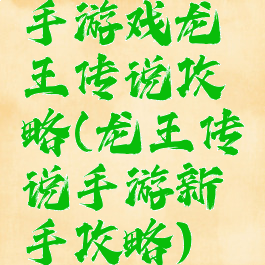 手游戏龙
王传说攻
略(龙王传
说手游新
手攻略)